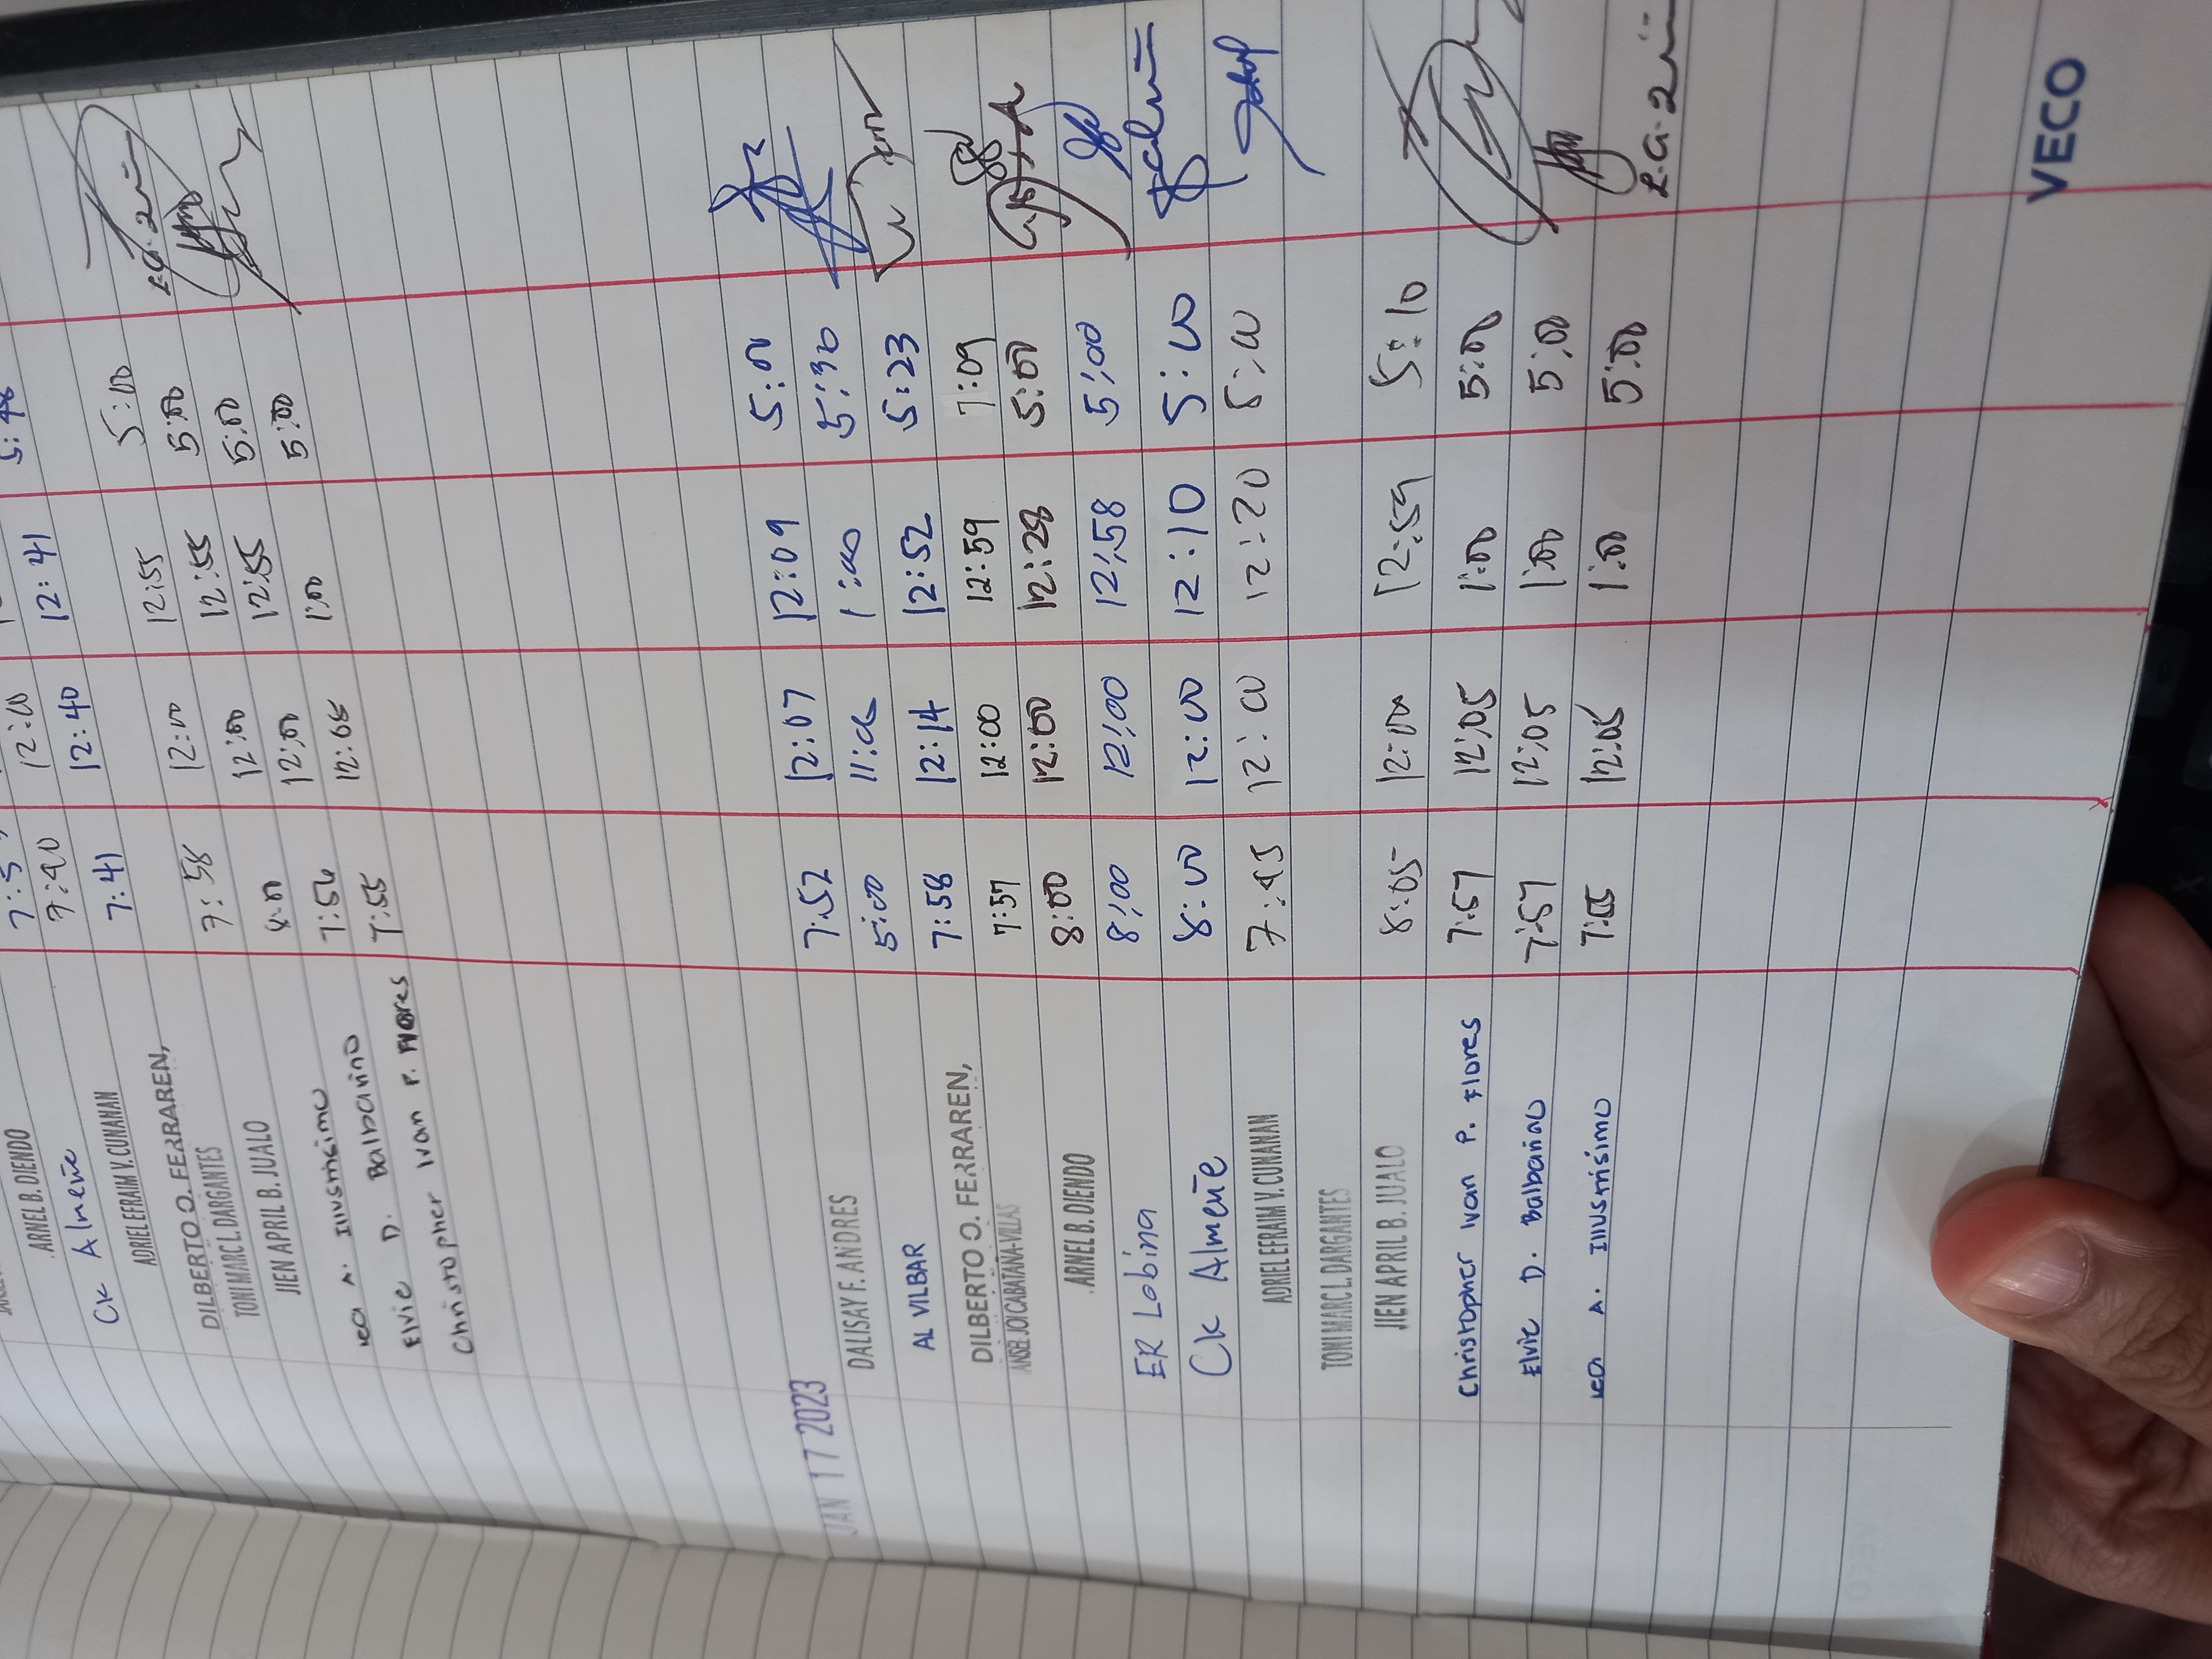 ARNEL B. DIENDO
CK Almeñe
ADRIEL EFRAIM V. CUNANAN 7:40 12:00
DILBERTO O. FERRAREN, 7:41 12:40 12:41 5:48
TONI MARC L. DARGANTES
JIEN APRIL B. JUALO 7:58 12:00 12:55 5:00
Lea A. Illusrisimo 8:00 12:00 12:55 5:00 L.A. 2
Elvie D. Balbarino 7:56 12:00 12:55 5:00
Christopher Ivan P. Flores 7:55 12:05 1:00 5:00
JAN 17 2023
DALISAY F. ANDRES 7:52 12:07 12:09 5:00
AL VILBAR 5:00 11:00 1:00 5:30
DILBERTO O. FERRAREN, 7:58 12:14 12:52 5:23
ANSEL JOI CABATANA-VILLAS 7:57 12:00 12:59 7:09
ARNEL B. DIENDO 8:00 12:00 12:28 5:00
ER Lobina 8:00 12:00 12:58 5:00
CK Almeñe 8:00 12:00 12:10 5:00
ADRIEL EFRAIM V. CUNANAN 7:45 12:00 12:20 5:00
TONI MARC L. DARGANTES
JIEN APRIL B. JUALO 8:05 12:00 12:59 5:10
Christopher Ivan P. Flores 7:57 12:05 1:00 5:00
Elvie D. Balbarino 7:57 12:05 1:00 5:00
Lea A. Illusrisimo 7:55 12:05 1:00 5:00 L.A. 2
VECO